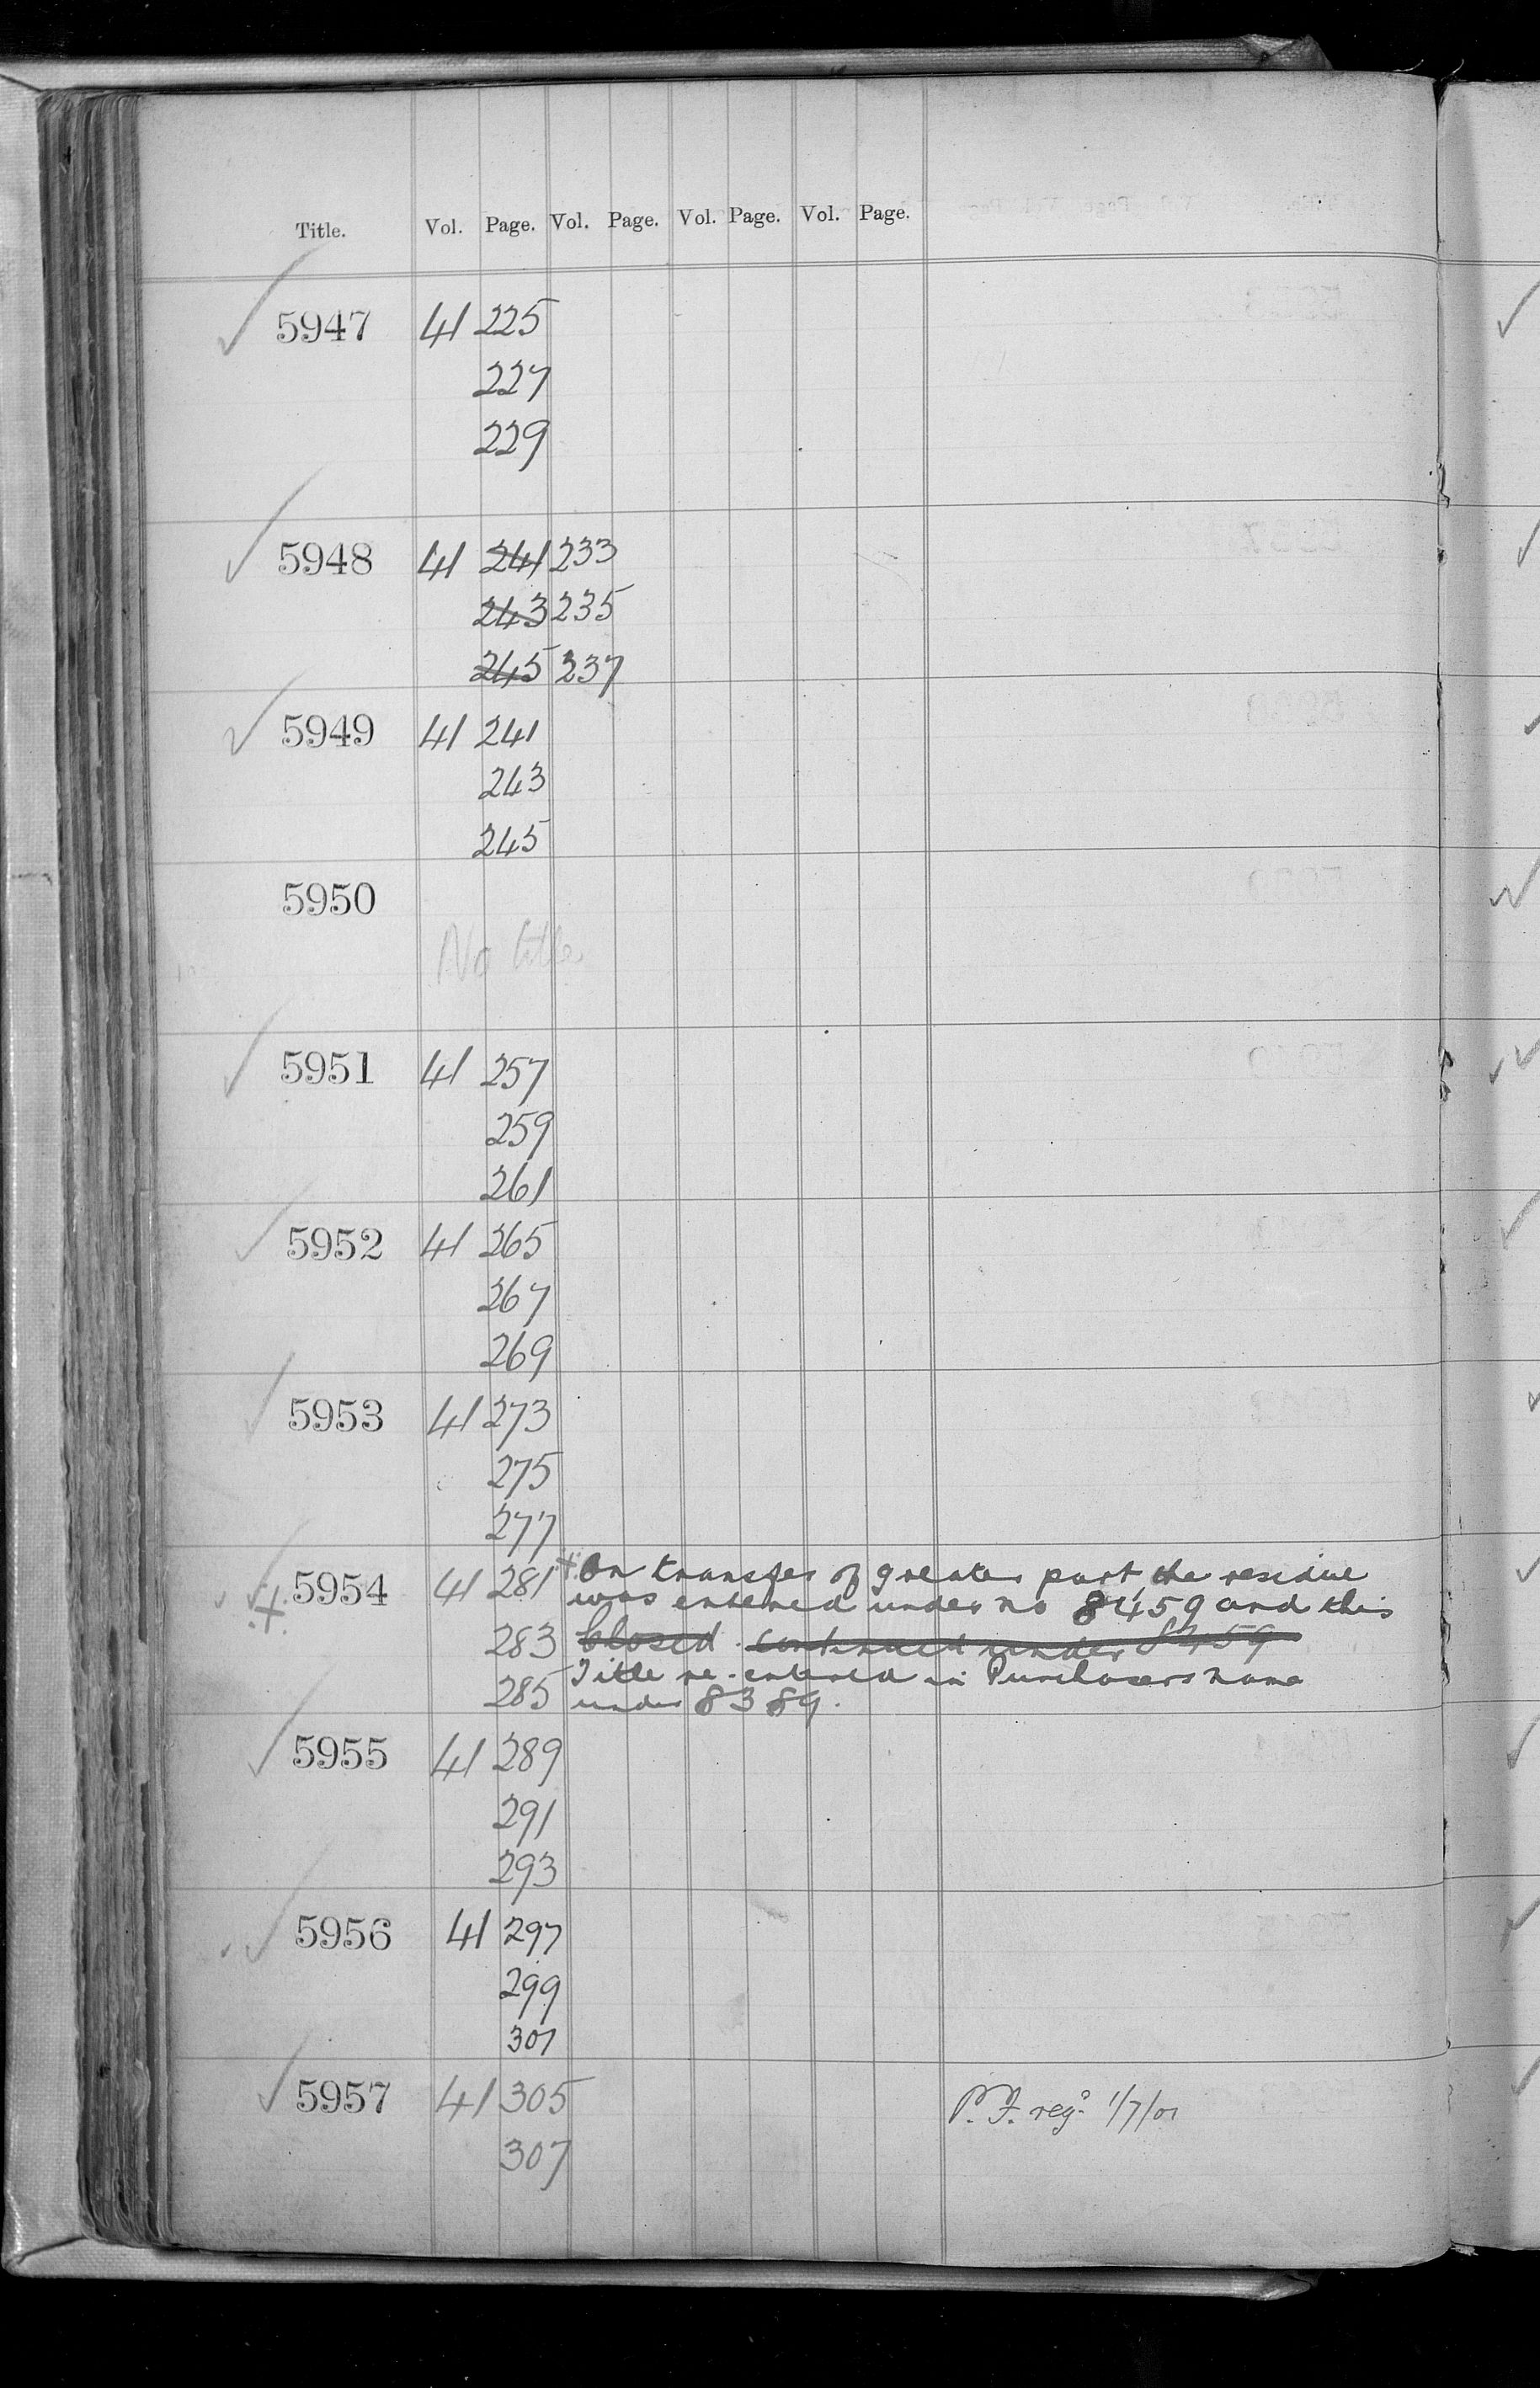 Title. Vol. Page. Vol. Page. Vol. Page. Vol. Page.
5947 41 225
227
229
5948 41 241 233
243 235
245 237
5949 41 241
243
245
5950
No title
5951 41 257
259
261
5952 41 265
267
269
5953 41 273
275
277
5954 41 281 + On transfer of greater part, the residue
was entered under no 8459 and this
283 Closed. continued under 8459
Title re-entered in Purchasers name
285 under 8389.
5955 41 289
291
293
5956 41 297
299
301
5957 41 305 P.F. regd 1/7/01
307